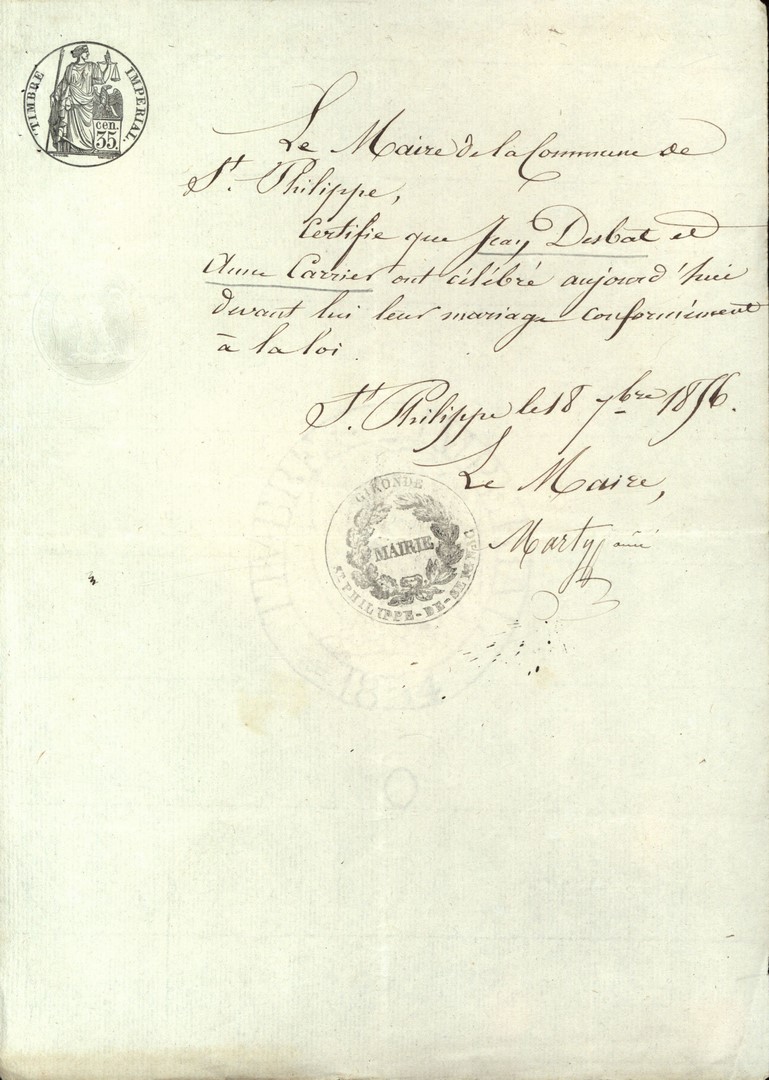 TIMBRE IMPERIAL.
cen.
35.
Le Maire de la Commune de
St. Philippe,
Certifie que Jean Desbat et
Anne Carrier ont célébré aujourd'hui
devant lui leur mariage conformément
à la loi.
St. Philippe le 18 7bre 1856.
Le Maire,
Marty ainé
GIRONDE
MAIRIE
ST PHILIPPE-DE-